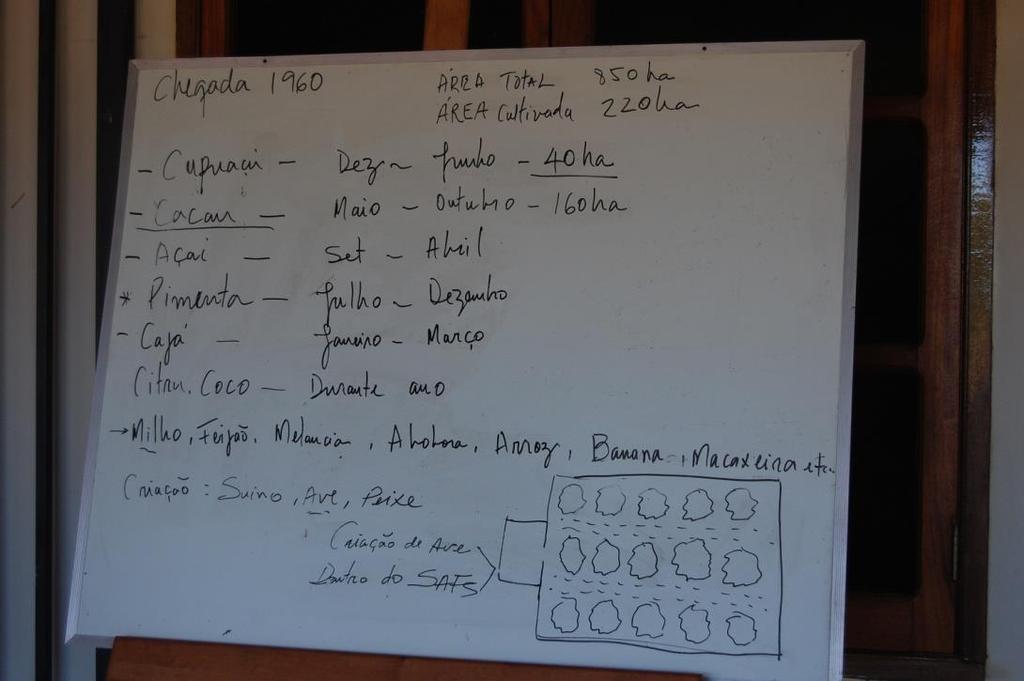 Chegada 1960
ÁREA TOTAL 850ha
ÁREA Cultivada 220ha
- Cupuaçu - Dez ~ Junho - 40ha
- Cacau - Maio ~ Outubro - 160ha
- Açai - Set ~ Abril
* Pimenta - Julho ~ Dezembro
- Cajá - Janeiro - Março
Citru. Coco - Durante ano
→ Milho, Feijão, Melancia, Abobora, Arroz, Banana, Macaxeira etc.
Criação: Suino, Ave, Peixe
Criação de Ave
Dentro do SAFs